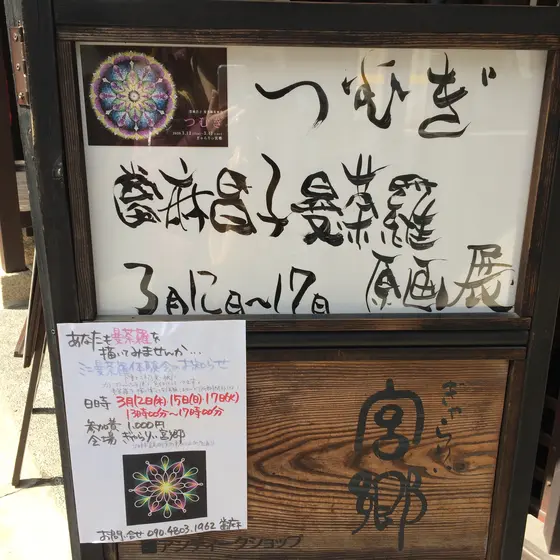 つむぎ
つむぎ
當麻昌子曼荼羅
原画展
3月12日～17日
あなたも曼荼羅を
描いてみませんか…
ミニ曼荼羅体験会のお知らせ
日時 3月12日(木) 15日(日) 17日(火)
13時00分～17時00分
参加費 1,000円
会場 ぎゃらりぃ宮郷
お問い合せ 090.4803.1962 當麻
ぎゃらりぃ
宮郷
アンティークショップ